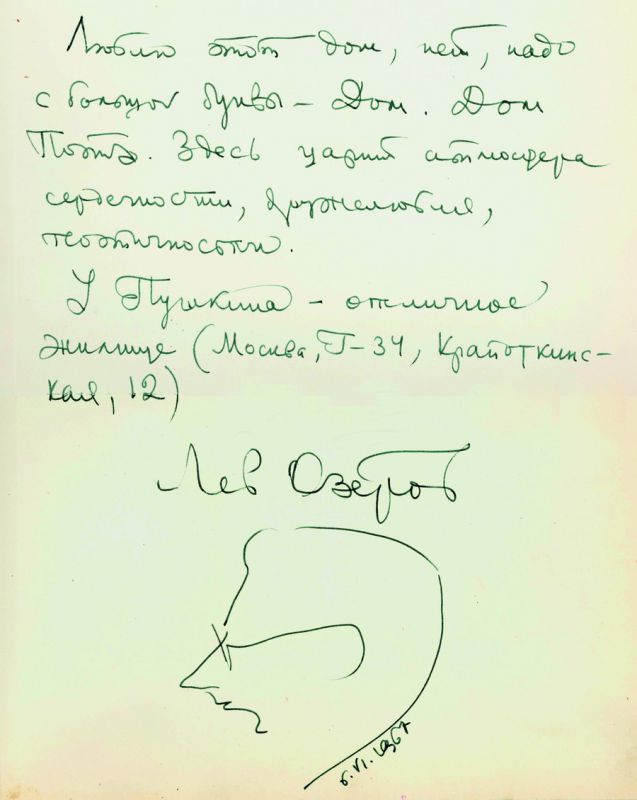 Люблю этот дом, нет, надо
с большой буквы – Дом. Дом
Поэта. Здесь царит атмосфера
сердечности, дружелюбия,
поэтичности.
У Пушкина – отличное
жилище (Москва, Г-34, Крапоткинс-
кая, 12)
Лев Озеров
6.VI.1967